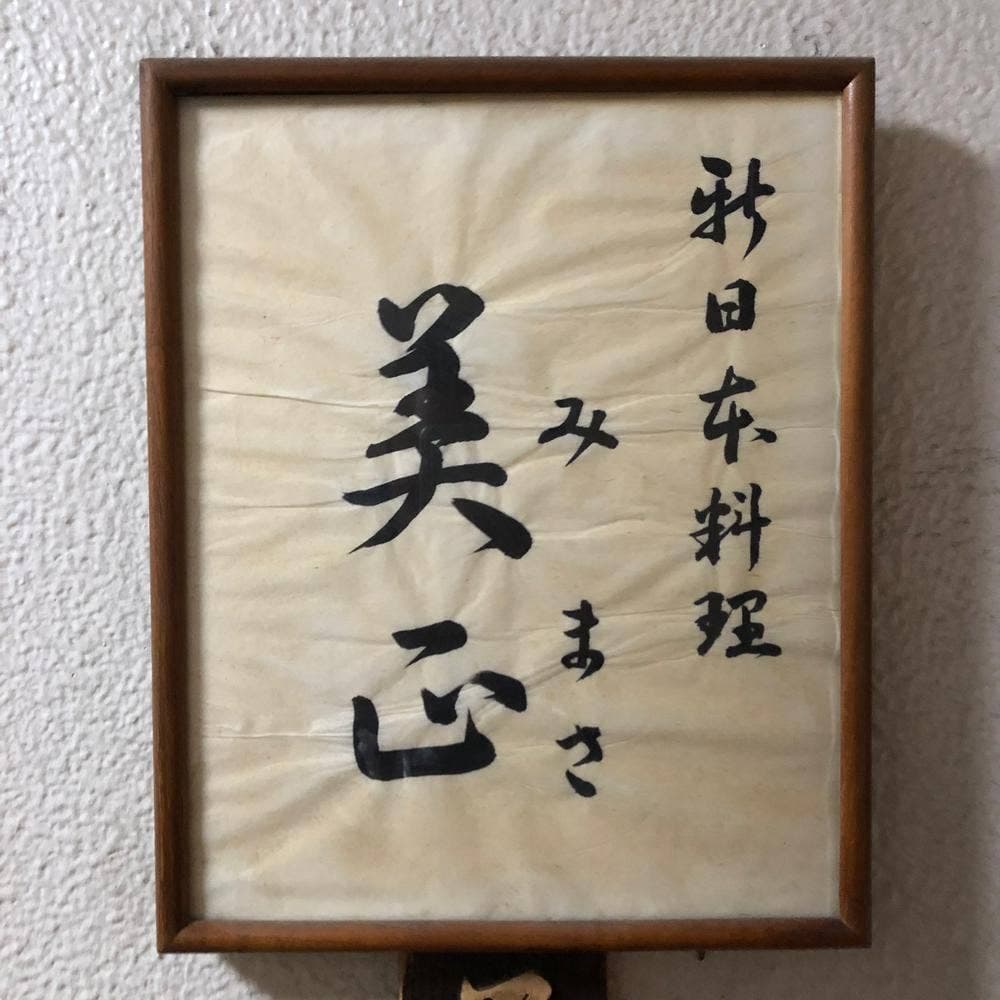 新日本料理
みまさ
美正